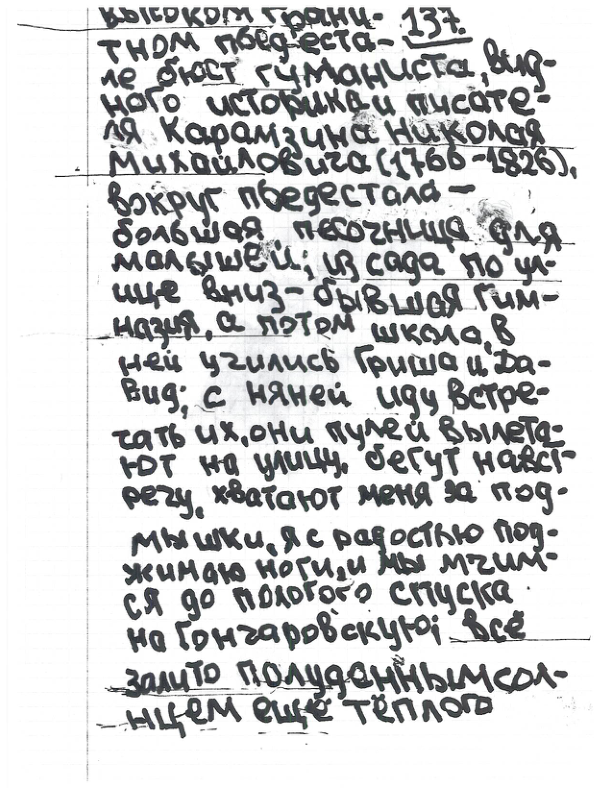 высоком грани- 137.
тном пьедеста-
ле бюст гуманиста, вид-
ного историка и писате-
ля Карамзина Николая
Михайловича (1766-1826),
вокруг пьедестала —
большая песочница для
малышей; из сада по ул-
ице вниз - бывшая гим-
назия, а потом школа, в
ней учились Гриша и Да-
вид; с няней иду встре-
чать их, они пулей вылета-
ют на улицу, бегут навст-
речу, хватают меня за под-
мышки, я с радостью под-
жимаю ноги, и мы мчим-
ся до пологого спуска
на Гончаровскую; всё
залито полуденным сол-
нцем ещё тёплого